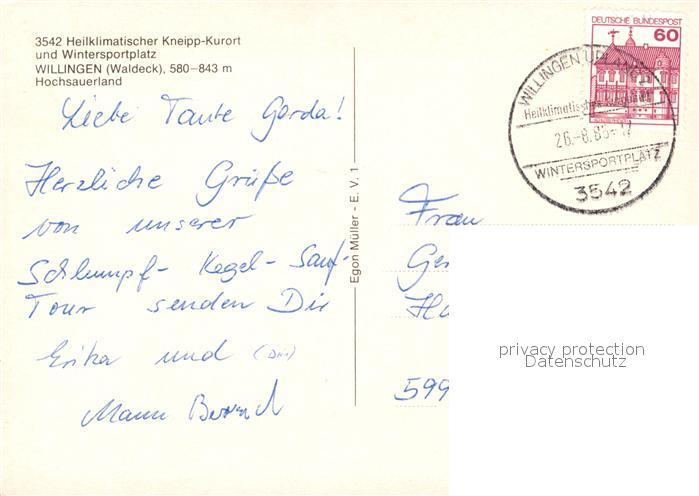 3542 Heilklimatischer Kneipp-Kurort
und Wintersportplatz
WILLINGEN (Waldeck), 580–843 m
Hochsauerland
Liebe Tante Gerda!
Herzliche Grüße
von unserer
Schlumpf- Kegel- Sauf-
Tour senden Dir
Erika und
Mann Bernd
Egon Müller - E. V. 1
DEUTSCHE BUNDESPOST
60
WILLINGEN UPLAND
Heilklimatischer
26.-8.8
WINTERSPORTPLATZ
3542
Frau
Ger
599
privacy protection
Datenschutz